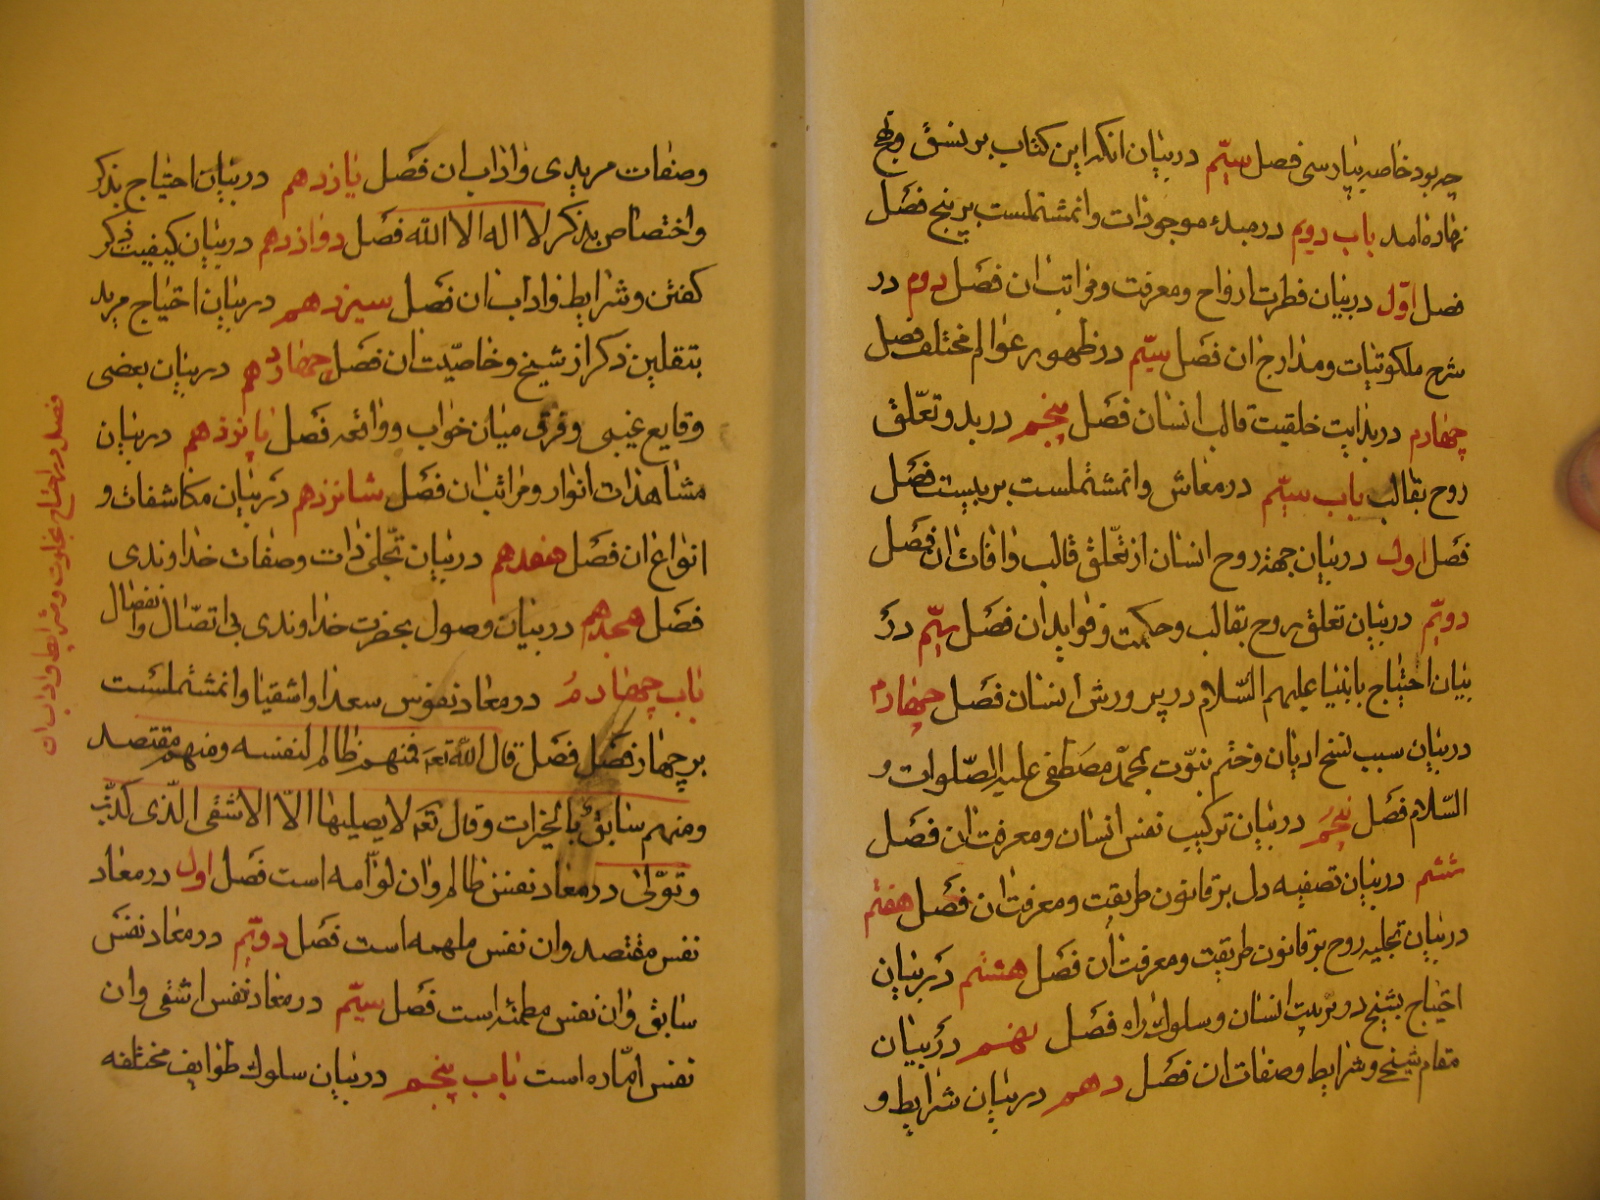 چه بود خاصه بپارسی فصل سیّم در بیان آنکه این کتاب بر نسق و نهج
نهاده آمد باب دویم در مبدء موجودات وانمشتملست بر پنج فصل
فصل اوّل در بیان فطرت ارواح ومعرفت ومراتب ان فصل دوم در
شرح ملکوتیات ومدارج ان فصل سیّم در ظهور عوالم مختلف فصل
چهارم در بدایت خلقیت قالب انسان فصل پنجم در بدو تعلّق
روح بقالب باب سیّم در معاش وانمشتملست بر بیست فصل
فصل اول در بیان حجب روح انسان از تعلّق قالب وافات ان فصل
دویّم در بیان تعلق روح بقالب وحکمت وفواید ان فصل سیّم در
بیان احتیاج بانبیا علیهم السّلام در پرورش انسان فصل چهارم
در بیان سبب نسخ ادیان وختم نبوّت بمحمّد مصطفی علیه الصّلوات و
السّلام فصل پنجم در بیان ترکیب نفس انسان ومعرفت ان فصل
ششم در بیان تصفیه دل بر قانون طریقت ومعرفت ان فصل هفتم
در بیان تجلیه روح بر قانون طریقت ومعرفت ان فصل هشتم در بیان
احتیاج بشیخ در تربیت انسان وسلوک راه فصل نهم در بیان
مقام شیخ وشرایط وصفات ان فصل دهم در بیان شرایط و
وصفات مریدی واداب ان فصل یازدهم در بیان احتیاج بذکر
واختصاص بذکر لا اله الا الله فصل دوازدهم در بیان کیفیت ذکر
کفتن وشرایط واداب ان فصل سیزدهم در بیان احتیاج مرید
بتلقین ذکر از شیخ وخاصیّت ان فصل چهاردهم در بیان بعضی
وقایع غیبی وفرق میان خواب وواقعه فصل پانزدهم در بیان
مشاهدات انوار ومراتب ان فصل شانزدهم در بیان مکاشفات و
انواع ان فصل هفدهم در بیان تجلی ذات وصفات خداوندی
فصل هجدهم در بیان وصول بحضرت خداوندی بی اتصّال وانفصال
باب چهارم در معاد نفوس سعدا واشقیا وانمشتملست
بر چهار فصل فصل قال الله تعه فمنهم ظالم لنفسه ومنهم مقتصد
ومنهم سابق بالخیرات وقال تعه لا یصلیها الّا الاشقی الّذی کذّب
وتولّی در معاد نفس ظالم وان لوّامه است فصل اول در معاد
نفس مقتصد وان نفس ملهمه است فصل دویّم در معاد نفس
سابق وان نفس مطمئنه است فصل سیّم در معاد نفس اشقی وان
نفس امّاره است باب پنجم در بیان سلوک طوایف مختلفه
فصل در احتیاج بخلوت وشرایط واداب ان